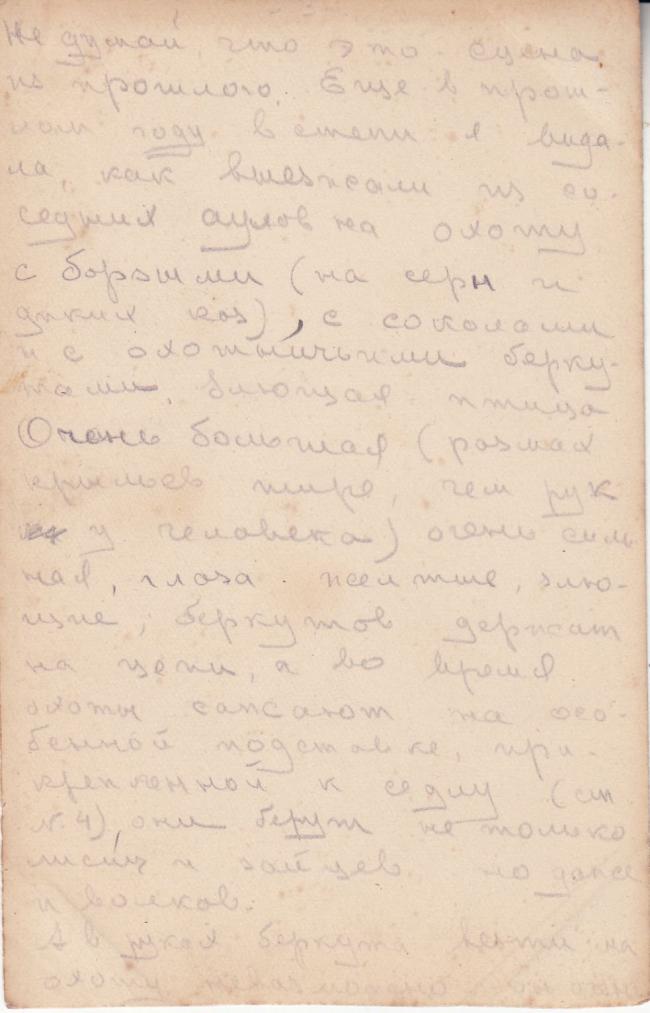 Не думай, что это сцена
из прошлого. Еще в прош-
лом году в степи я вида-
ла, как выезжали из со-
седних аулов на охоту
с борзыми (на серн и
диких коз), с соколами
и с охотничьими берку-
тами, злющая птица
Очень большая (размах
крыльев шире, чем рук
у человека) очень силь
ная, глаза желтые, злю-
щие, беркутов держат
на цепи, а во время
охоты сажают на осо-
бенной подставке, при-
крепленной к седлу (см
№ 4), они берут не только
лисиц и зайцев но даже
и волков.
А в руках беркута везти на
охоту невозможно он очень